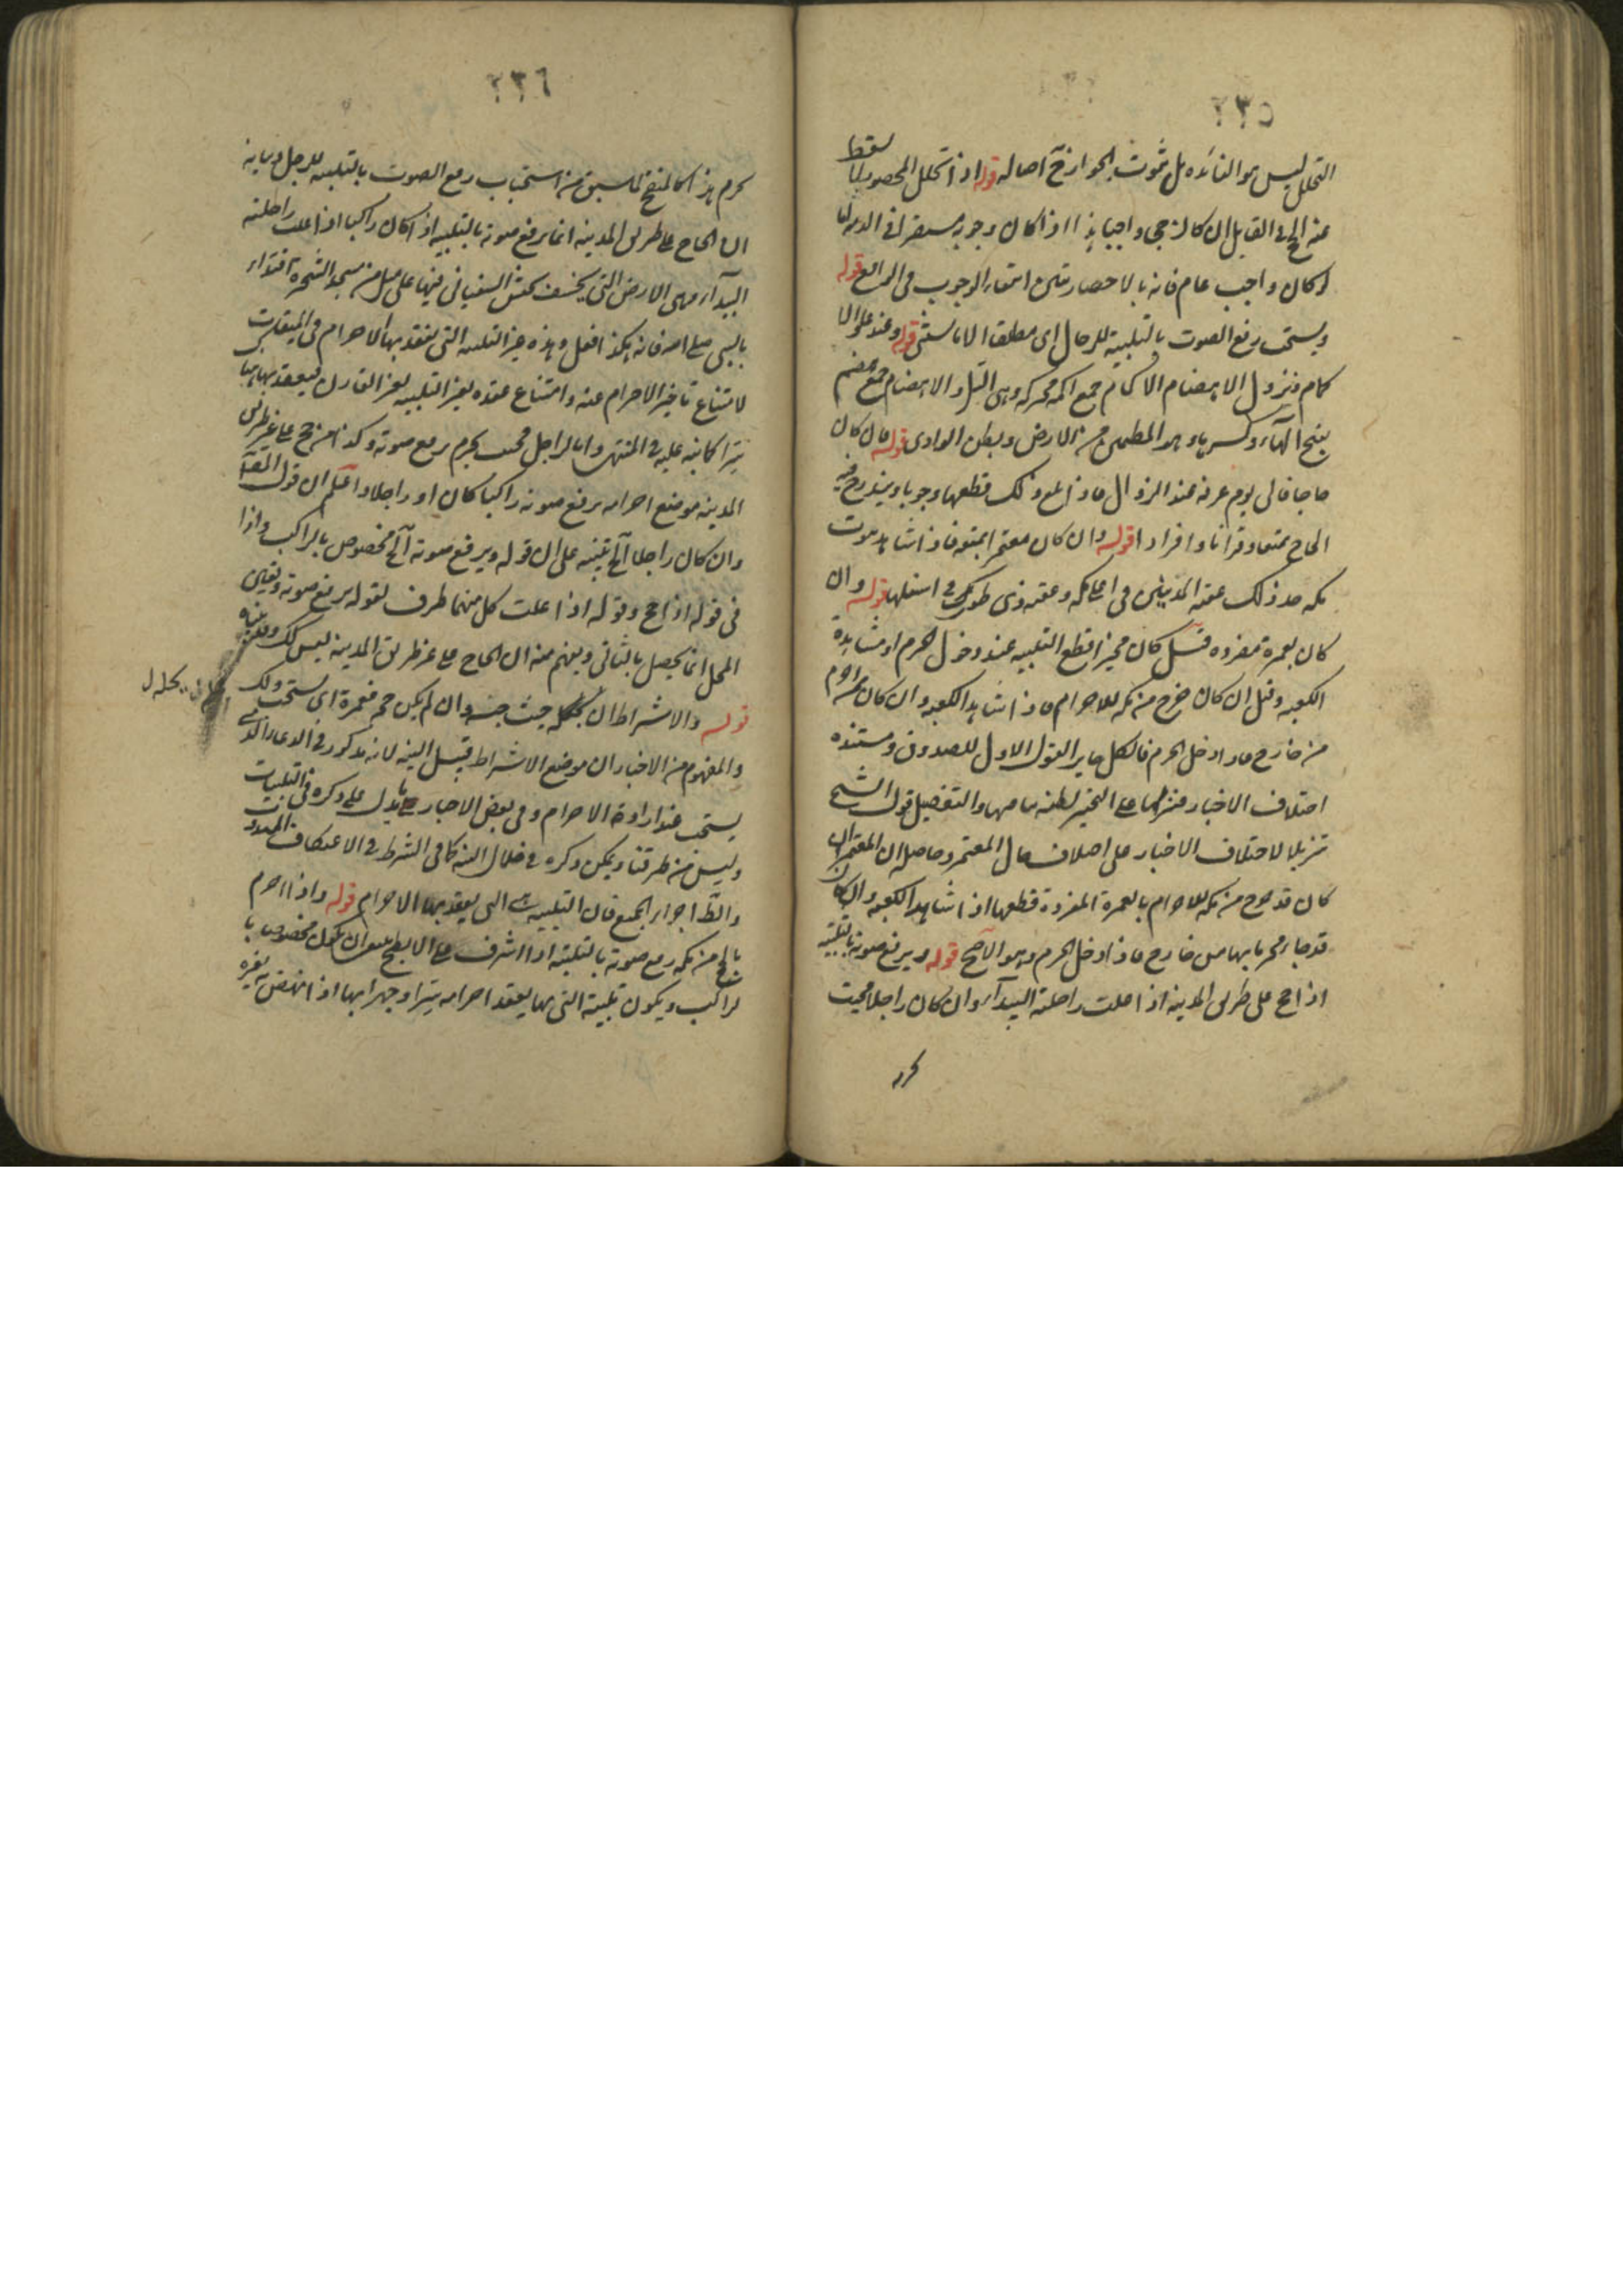 ٢٣٥
التحلل ليس هو الفائده بل ثبوت الجواز ح اصاله قوله اذا تحلل المحصور لا يسقط
عنه الحج في القابل ان كان حجه واجبا هذا اذا كان وجوبه مستقرا في الذمه
او كان واجب عام فانه بالاحصار تبين انتفاء الوجوب في الواقع قوله
ويستحب رفع الصوت بالتلبية للرجال اى مطلقا الا ما يستثنى قوله وعند علو الا
كام ونزول الاهضام الاكام جمع اكمه محركه وهى التل والاهضام جمع هضم
بفتح الهاء وكسرها وهو المطمئن من الارض وبطن الوادى قوله فان كان
حاجا فالى يوم عرفه عند الزوال فاذا بلغ ذلك قطعها وجوبا ويندرج فيه
الحاج تمتعا وقرانا وافرادا قوله وان كان معتمرا بمتعه فاذا شاهد بيوت
مكه حد ذلك عقبة المدنيين في اعلى مكه وعقبه ذى طوى في اسفلها قوله وان
كان بعمرة مفرده قيل كان مخيرا قطع التلبيه عند دخول الحرم او مشاهدة
الكعبه وقيل ان كان خرج من مكه للاحرام فاذا شاهد الكعبه وان كان احرم
من خارج فاذا دخل الحرم فالكل جايز القول الاول للصدوق ومستنده
اختلاف الاخبار فنزلها على التخيير لظنه تنافيها والتفصيل قول الشيخ
تنزيلا لاختلاف الاخبار على اختلاف حال المعتمر وحاصله ان المعتمر ان
كان قد خرج من مكه للاحرام بالعمرة المفردة قطعها اذا شاهد الكعبه وان كان
قد جاء محرما بها من خارج فاذا دخل الحرم وهو الاصح قوله ويرفع صوته بالتلبيه
اذا حج على طريق المدينه اذا علت راحلته البيداء وان كان راجلا فحيث
يحرم
٢٣٦
يحرم هذا كالمنقح لما سبق من استحباب رفع الصوت بالتلبيه للرجل وبيانه
ان الحاج على طريق المدينه انما يرفع صوته بالتلبيه اذا كان راكبا اذا علت راحلته
البيداء وهى الارض التى يخسف بجيش السفيانى فيها على ميل من مسجد الشجرة اقتداء
بالنبى صلى الله فانه هكذا فعل وهذه غير التلبيه التى يعقد بها الاحرام في الميقات
لامتناع تاخير الاحرام عنه وامتناع عقده بغير التلبيه لغير القارن فيعقد بها هنا
سرا كما نبه عليه في المنتهى واما الراجل فحيث يحرم يرفع صوته وكذا من حج على غير طريق
المدينه موضع احرامه يرفع صوته راكبا كان او راجلا واعلم ان قول المص
وان كان راجلا الخ تنبيه على ان قوله ويرفع صوته الخ مخصوص بالراكب واذا
فى قوله اذا حج وقوله اذا علت كل منهما ظرف لقوله يرفع صوته وتعيين
المحل انما يحصل بالثانى ويفهم منه ان الحاج على غير طريق المدينه ليس كذلك
قوله والاشتراط ان يحله حيث حبسه وان لم يكن حجه فعمرة اى يستحب ذلك
والمفهوم من الاخبار ان موضع الاشتراط قبيل النيه لانه مذكور في الدعاء الذى
يستحب عند ارادة الاحرام وفى بعض الاخبار ما يدل على ذكره في التلبيات
وليس من طرقنا ويمكن ذكره في خلال النيه كما في الشرط في الاعتكاف المندوب
والظ اجزاء الجميع فان التلبيه هى التى يعقد بها الاحرام قوله واذا احرم
بالحج من مكه رفع صوته بالتلبيه اذا اشرف على الابطح ينبغى ان يكون مخصوصا با
لراكب ويكون تلبيته التى بها يعقد احرامه سرا وجهرا بها اذا نهض به بعيره